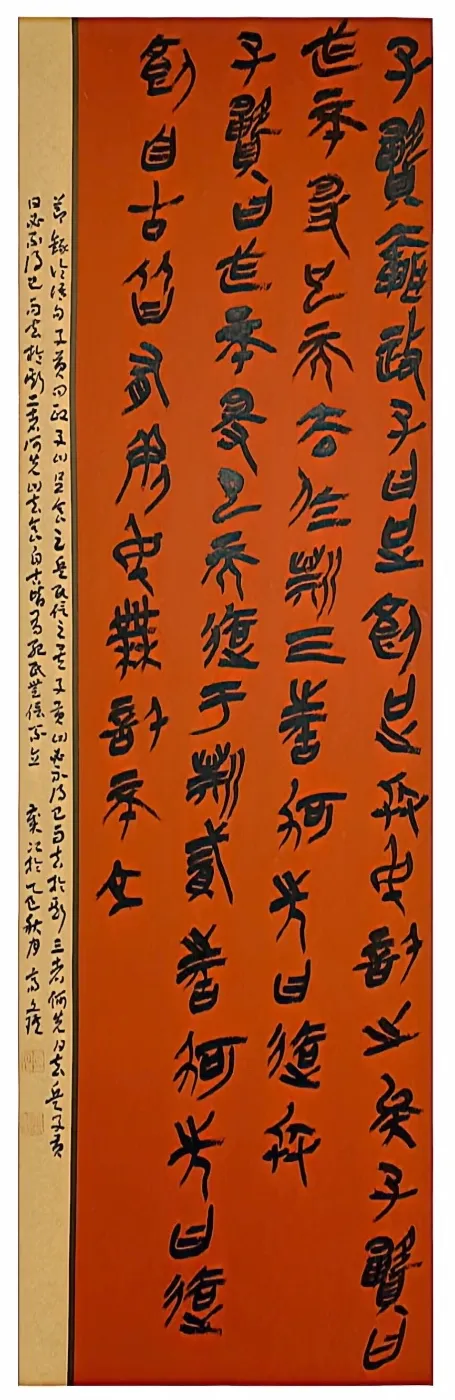 子贛聞政子曰足飤足兵民信之矣子贛曰
必不得已而去於斯三者何先曰去兵
子贛曰必不得已而去于斯貳者何先曰去
飤自古皆有死民無信不立
節錄論語句子貢問政子曰足食足兵民信之矣子貢曰必不得已而去於斯三者何先曰去兵子貢
曰必不得已而去於斯二者何先曰去食自古皆有死民無信不立 歲次於乙巳秋月 高文